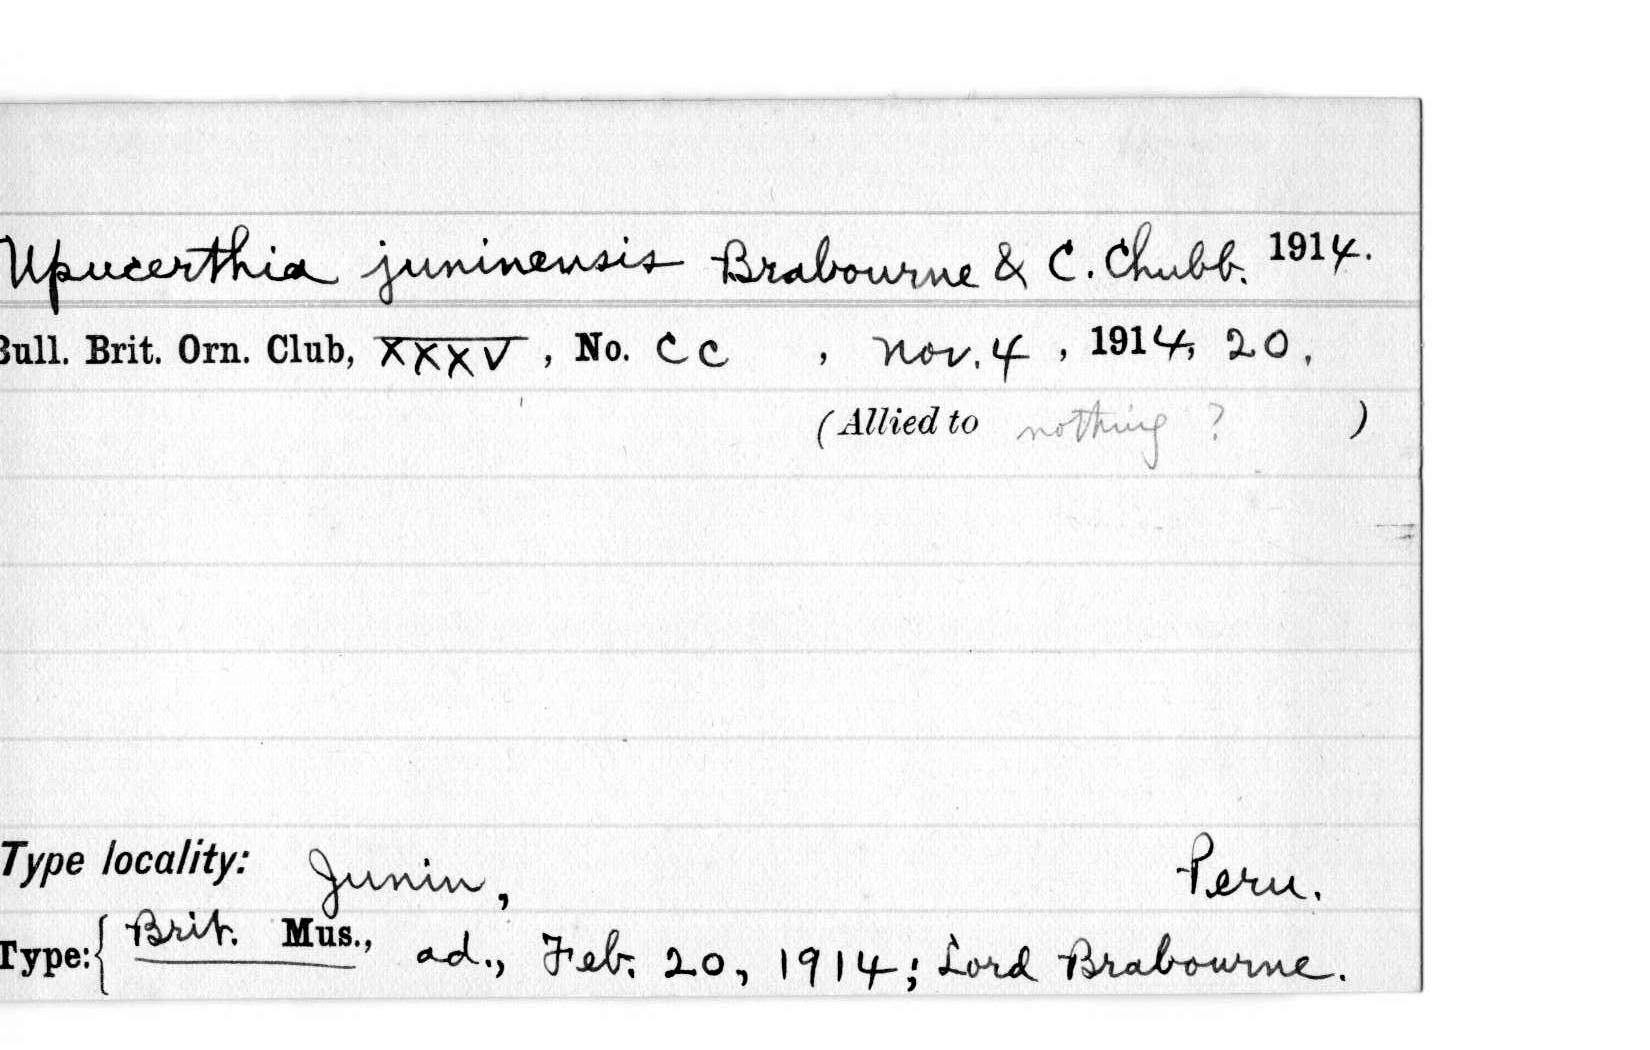 Upucerthia juninensis Brabourne & C. Chubb. 1914.
Bull. Brit. Orn. Club, XXXV, No. CC, Nov. 4, 1914, 20.
(Allied to nothing ? )
Type locality: Junin, Peru.
Type: { Brit. Mus., ad., Feb. 20, 1914; Lord Brabourne.